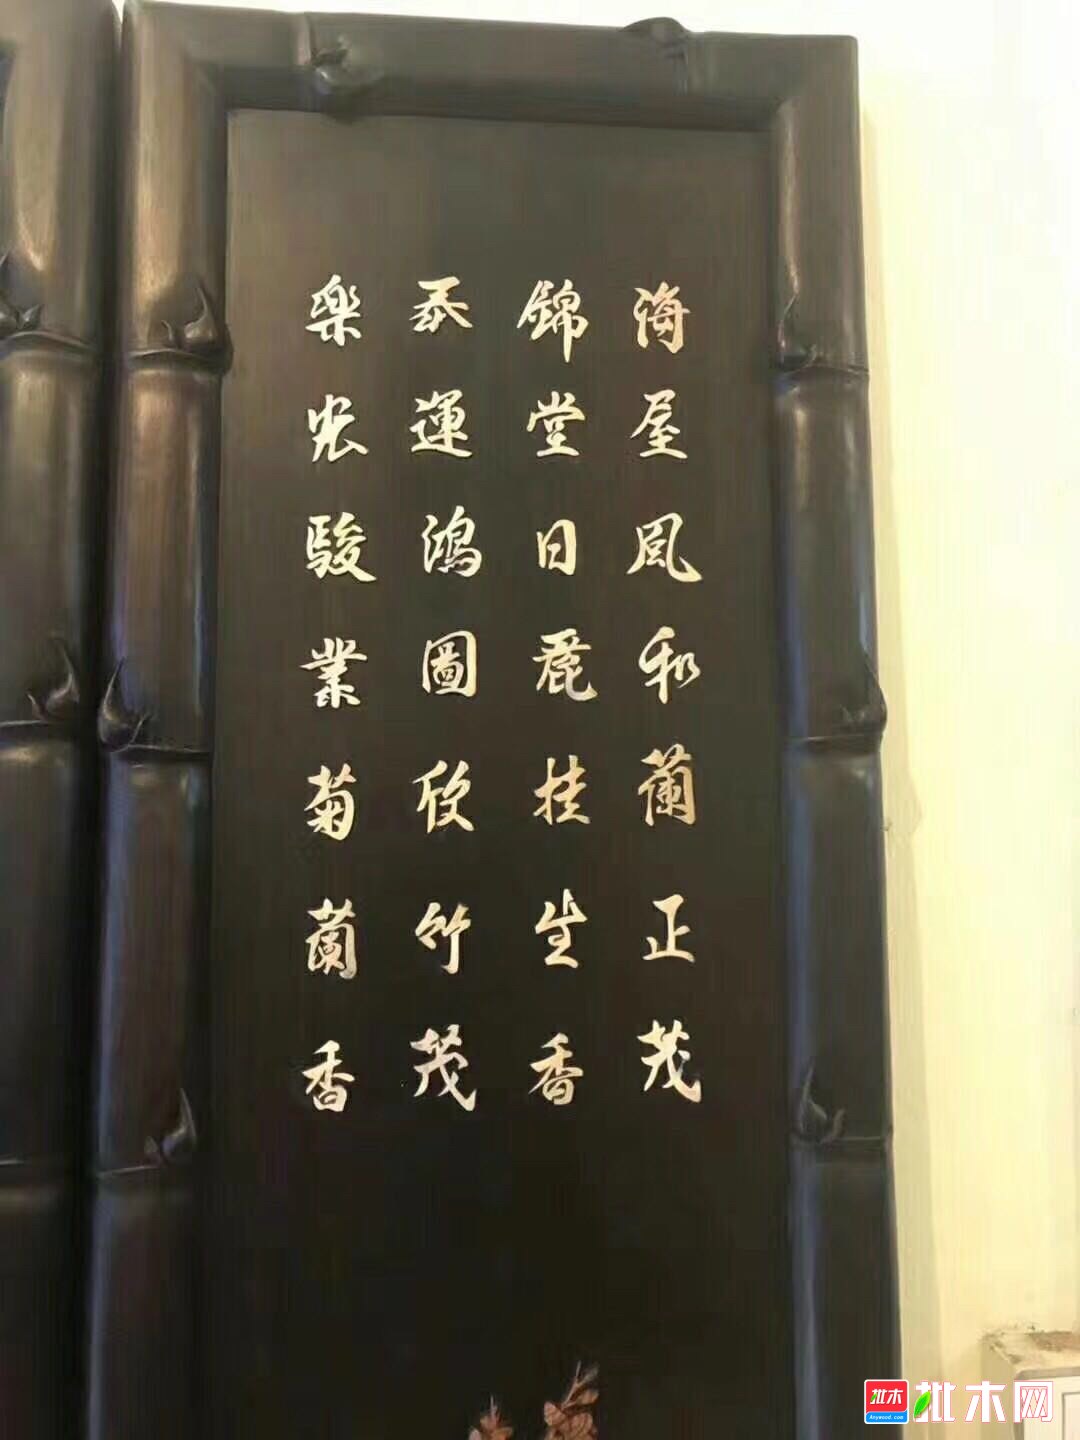 海屋風和蘭正茂
錦堂日麗桂生香
運鴻圖欣竹茂
樂駿業菊蘭香
批木
Anywood.com
批木网